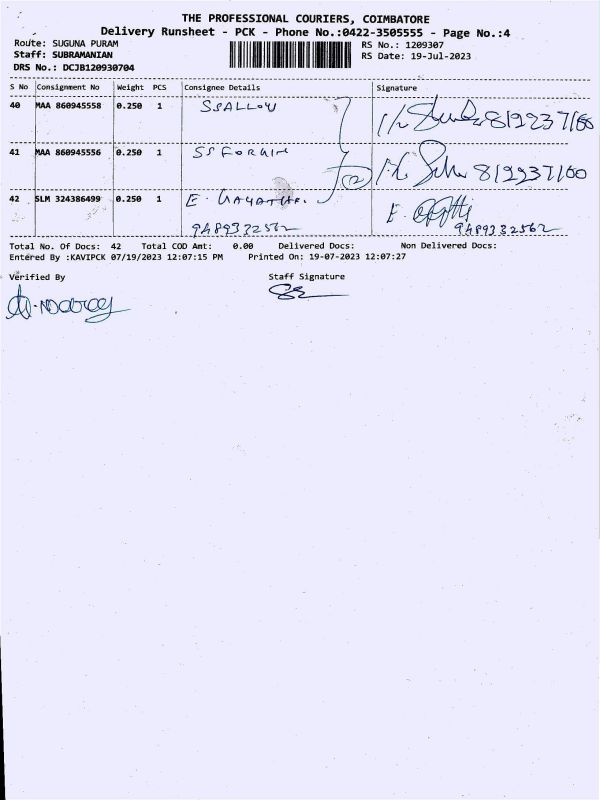 THE PROFESSIONAL COURIERS, COIMBATORE
Delivery Runsheet - PCK - Phone No.:0422-3505555 - Page No.:4
Route: SUGUNA PURAM RS No.: 1209307
Staff: SUBRAMANIAN RS Date: 19-Jul-2023
DRS No.: DCJB120930704
S No Consignment No Weight PCS Consignee Details Signature
40 MAA 860945558 0.250 1 SSALLOW 8129237160
41 MAA 860945556 0.250 1 SS FORGIN 8129237160
42 SLM 324386499 0.250 1 E. GAYATHRI.
9489332562 9489332562
Total No. Of Docs: 42 Total COD Amt: 0.00 Delivered Docs: Non Delivered Docs:
Entered By :KAVIPCK 07/19/2023 12:07:15 PM Printed On: 19-07-2023 12:07:27
Verified By Staff Signature